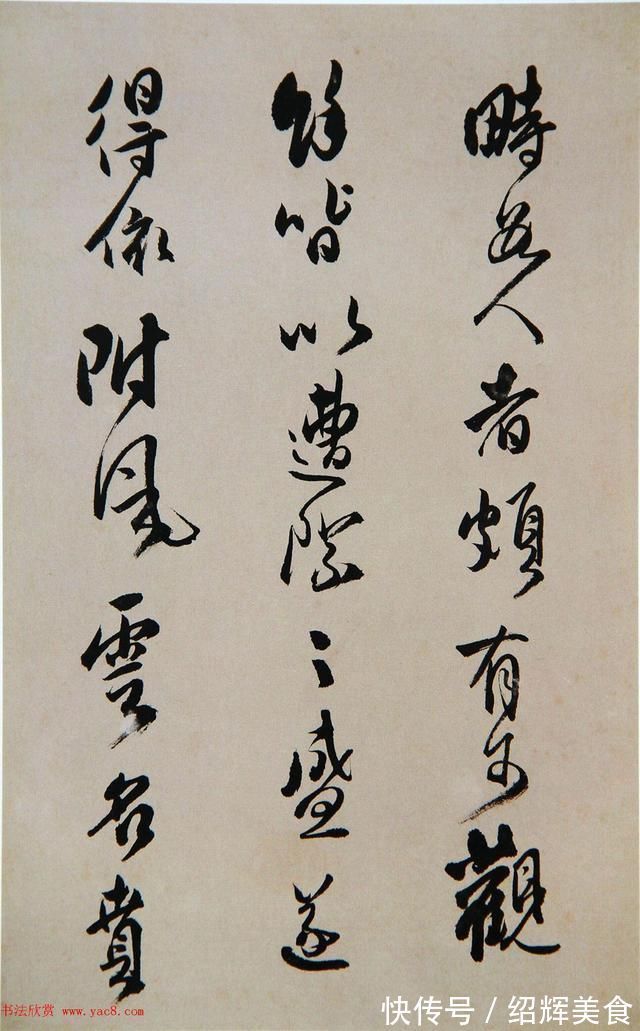 時若人者頗有可觀
餘皆以遭際之盛遂
得依附風雲名賁
书法欣赏 www.yac8.com
快传号／绍辉美食